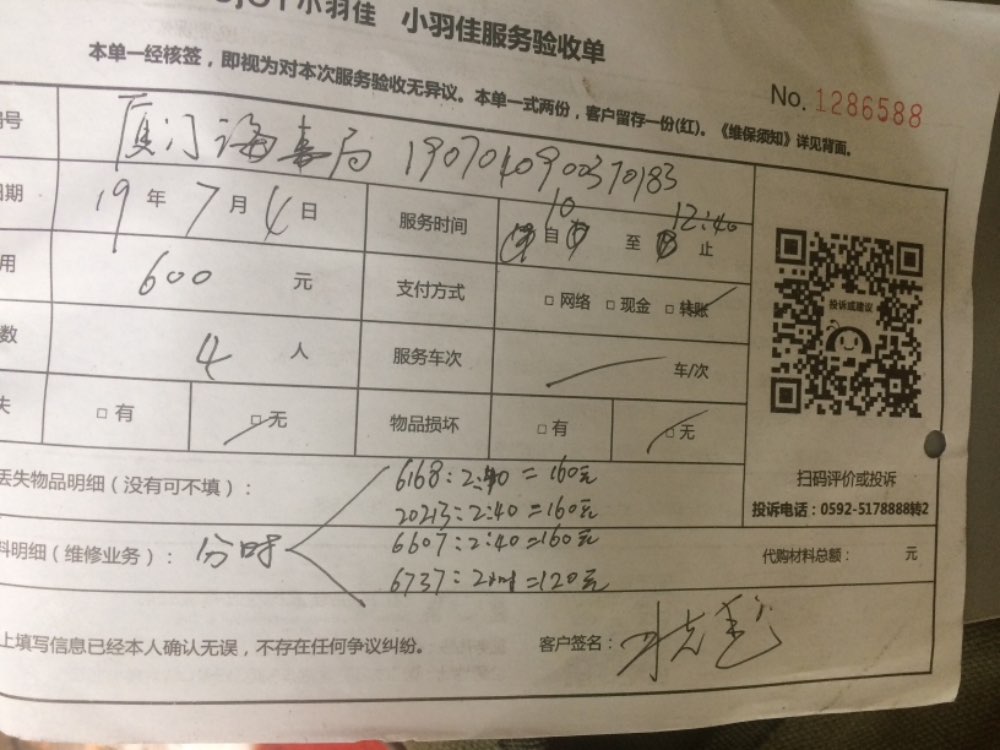 小羽佳 小羽佳服务验收单
本单一经核签，即视为对本次服务验收无异议。本单一式两份，客户留存一份(红)。《维保须知》详见背面。
No. 1286588
号 厦门海事局 1907040900370183
期 19 年 7 月 4 日 服务时间 10 自 至 12:40 止
用 600 元 支付方式 □ 网络 □ 现金 □ 转账
数 4 人 服务车次 车/次
失 □ 有 □ 无 物品损坏 □ 有 □ 无
投诉或建议
扫码评价或投诉
投诉电话：0592-5178888转2
丢失物品明细（没有可不填）：
6168：2:40 = 160元
20213：2:40 = 160元
料明细（维修业务）： 分时
6607：2:40 = 160元
6737：2小时 = 120元
代购材料总额： 元
上填写信息已经本人确认无误，不存在任何争议纠纷。 客户签名：